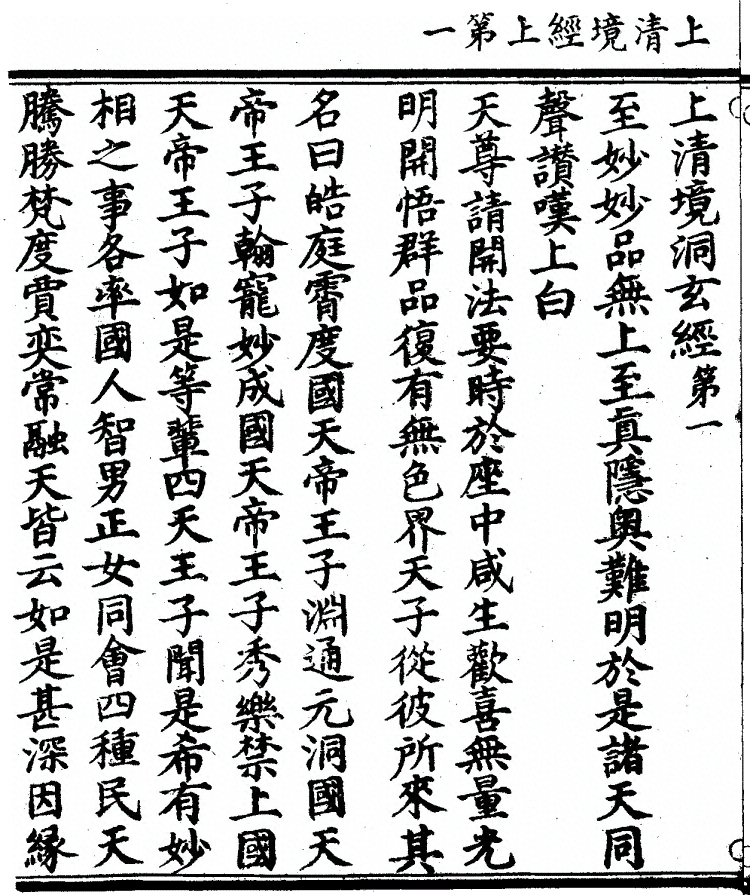 上清境經上第一
上清境洞玄經第一
至妙妙品無上至真隱奥難明於是諸天同
聲讃嘆上白
天尊請開法要時於座中咸生歡喜無量光
明開悟群品復有無色界天子從彼所來其
名曰皓庭霄度國天帝王子淵通元洞國天
帝王子翰寵妙成國天帝王子秀樂禁上國
天帝王子如是等輩四天王子聞是希有妙
相之事各率國人智男正女同會四種民天
騰勝梵度賈奕常融天皆云如是甚深因縁